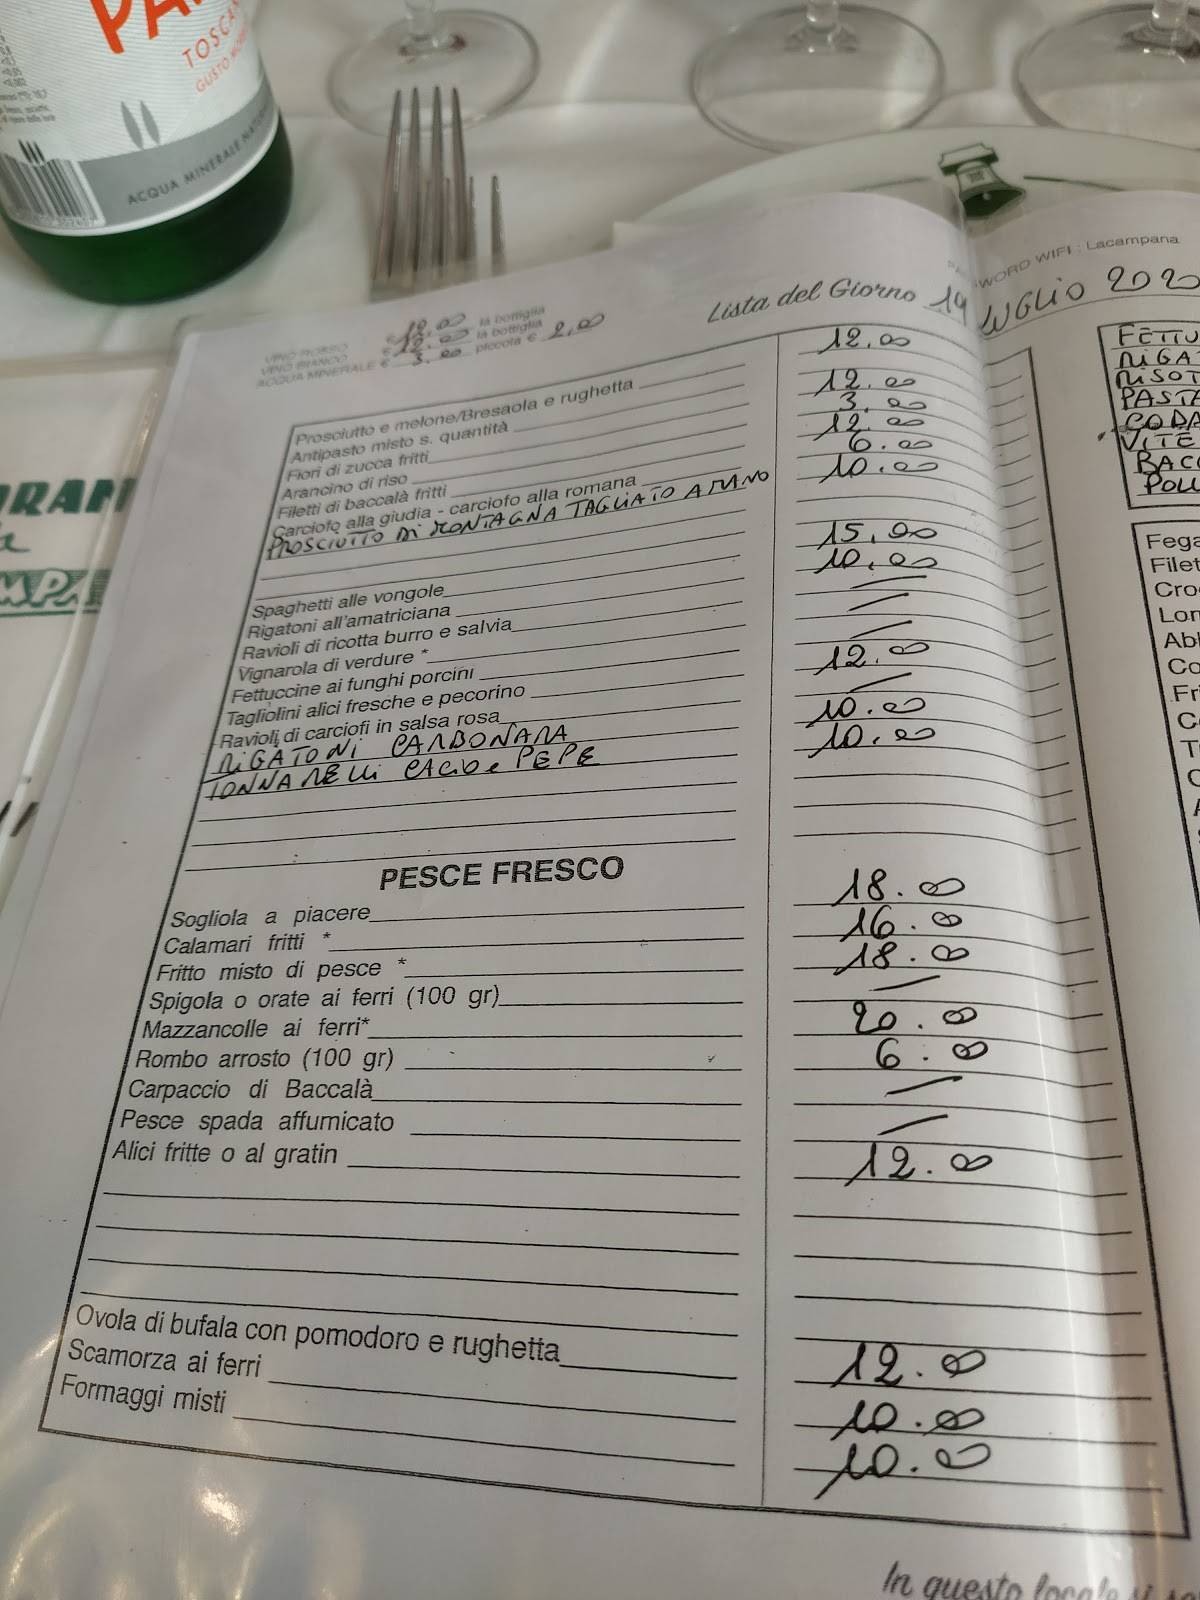 TOSCA
GUSTO
ACQUA MINERALE NATU
PASSWORD WIFI : Lacampana
Lista del Giorno 19 LUGLIO 2020
VINO ROSSO € 12.00 la bottiglia
VINO BIANCO € 12.00 la bottiglia
ACQUA MINERALE € 3.00 piccola € 2,00
Prosciutto e melone/Bresaola e rughetta 12.00
Antipasto misto s. quantità
Fiori di zucca fritti 12.00
Arancino di riso 3.00
Filetti di baccalà fritti 12.00
Carciofo alla giudia - carciofo alla romana 6.00
PROSCIUTTO DI MONTAGNA TAGLIATO A MANO 10.00
Spaghetti alle vongole 15.00
Rigatoni all'amatriciana 10.00
Ravioli di ricotta burro e salvia
Vignarola di verdure *
Fettuccine ai funghi porcini
Tagliolini alici fresche e pecorino 12.00
Ravioli di carciofi in salsa rosa
RIGATONI CARBONARA 10.00
TONNARELLI CACIO e PEPE 10.00
PESCE FRESCO
Sogliola a piacere 18.00
Calamari fritti * 16.00
Fritto misto di pesce * 18.00
Spigola o orate ai ferri (100 gr)
Mazzancolle ai ferri* 20.00
Rombo arrosto (100 gr) 6.00
Carpaccio di Baccalà
Pesce spada affumicato
Alici fritte o al gratin 12.00
Ovola di bufala con pomodoro e rughetta 12.00
Scamorza ai ferri 10.00
Formaggi misti 10.00
In questo locale si
FETTU
RIGA
RISOT
PASTA
CODA
VITE
BACC
POLL
Fega
Filet
Cro
Lon
Abb
Co
Fri
C
T
C
ORAN
MPA